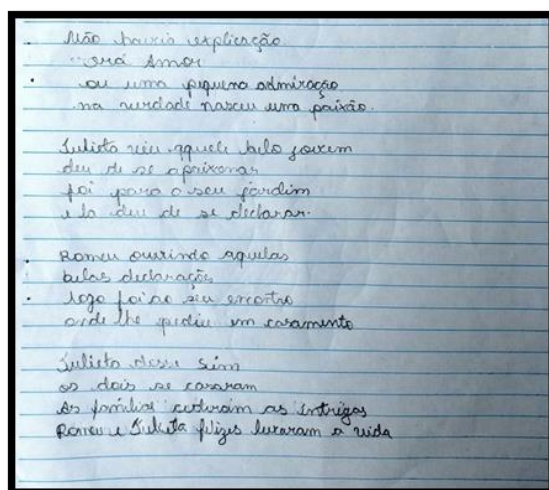 Não havia explicação
era Amor
ou uma piquena admiração
na verdade nasceu uma paixão.
Julieta viu aquele belo jovem
deu de se apaixonar
foi para o seu jardim
e la deu de se declarar.
Romeu ouvindo aquelas
belas declarações
logo foi ao seu encontro
onde lhe pediu em casamento
Julieta disse sim
os dois se casaram
As famílias cederam as intrigas
Romeu e Julieta felizes levaram a vida